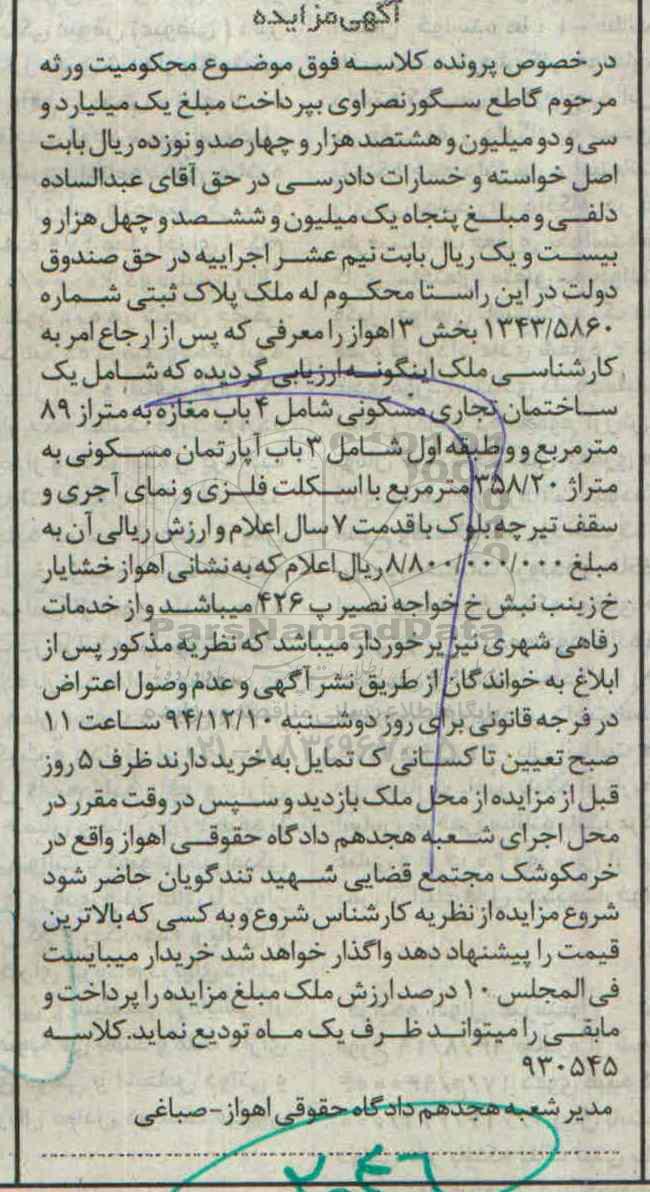 آگهی مزایده
در خصوص پرونده کلاسه فوق موضوع محکومیت ورثه
مرحوم گاطع سگورنصراوی بپرداخت مبلغ یک میلیارد و
سی و دو میلیون و هشتصد هزار و چهارصد و نوزده ریال بابت
اصل خواسته و خسارات دادرسی در حق آقای عبدالساده
دلفی و مبلغ پنجاه یک میلیون و ششصد و چهل هزار و
بیست و یک ریال بابت نیم عشر اجراییه در حق صندوق
دولت در این راستا محکوم له ملک پلاک ثبتی شماره
۱۳۴۳/۵۸۶۰ بخش ۳ اهواز را معرفی که پس از ارجاع امر به
کارشناسی ملک اینگونه ارزیابی گردیده که شامل یک
ساختمان تجاری مسکونی شامل ۴ باب مغازه به متراز ۸۹
مترمربع و و طبقه اول شامل ۳ باب آپارتمان مسکونی به
متراژ ۳۵۸/۲۰ مترمربع با اسکلت فلزی و نمای آجری و
سقف تیرچه بلوک با قدمت ۷ سال اعلام و ارزش ریالی آن به
مبلغ ۸/۸۰۰/۰۰۰/۰۰۰ ریال اعلام که به نشانی اهواز خشایار
خ زینب نبش خ خواجه نصیر پ ۴۲۶ میباشد و از خدمات
رفاهی شهری نیز برخوردار میباشد که نظریه مذکور پس از
ابلاغ به خواندگان از طریق نشر آگهی و عدم وصول اعتراض
در فرجه قانونی برای روز دوشنبه ۹۴/۱۲/۱۰ ساعت ۱۱
صبح تعیین تا کسانی ک تمایل به خرید دارند ظرف ۵ روز
قبل از مزایده از محل ملک بازدید و سپس در وقت مقرر در
محل اجرای شعبه هجدهم دادگاه حقوقی اهواز واقع در
خرمکوشک مجتمع قضایی شهید تندگویان حاضر شود
شروع مزایده از نظریه کارشناس شروع و به کسی که بالاترین
قیمت را پیشنهاد دهد واگذار خواهد شد خریدار میبایست
فی المجلس ۱۰ درصد ارزش ملک مبلغ مزایده را پرداخت و
مابقی را میتواند ظرف یک ماه تودیع نماید. کلاسه
۹۳۰۵۴۵
مدیر شعبه هجدهم دادگاه حقوقی اهواز - صباغی
ParsNamadData
۰۲۱-۸۸۳۴۹۶۷۰-۵